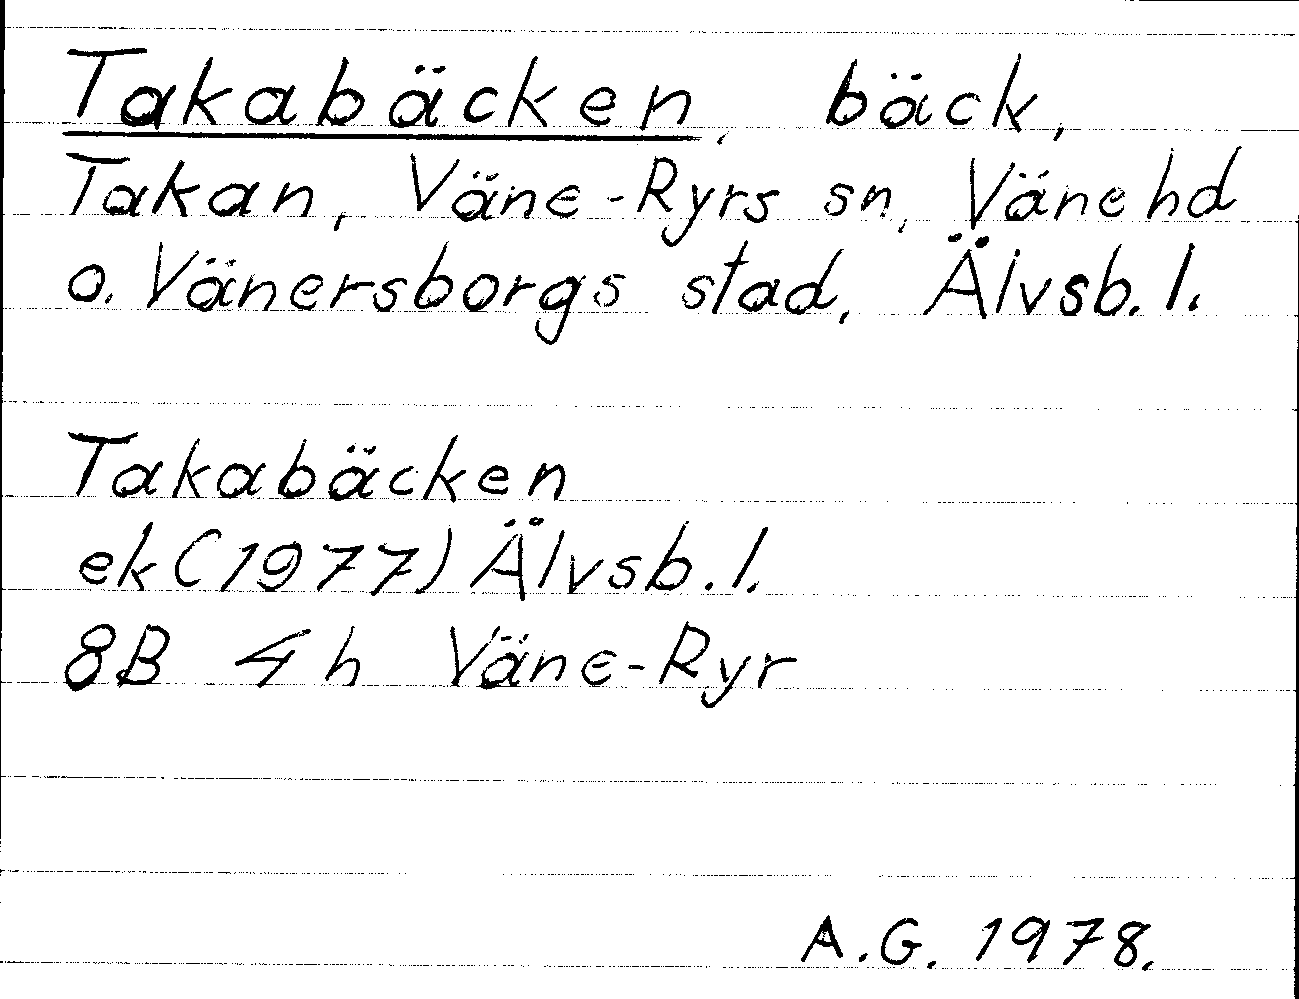 Takabäcken, bäck,
Takan, Väne-Ryrs sn, Väne hd
o. Vänersborgs stad, Älvsb. l.
Takabäcken
ek (1977) Älvsb. l.
8B 4h Väne-Ryr
A.G. 1978.